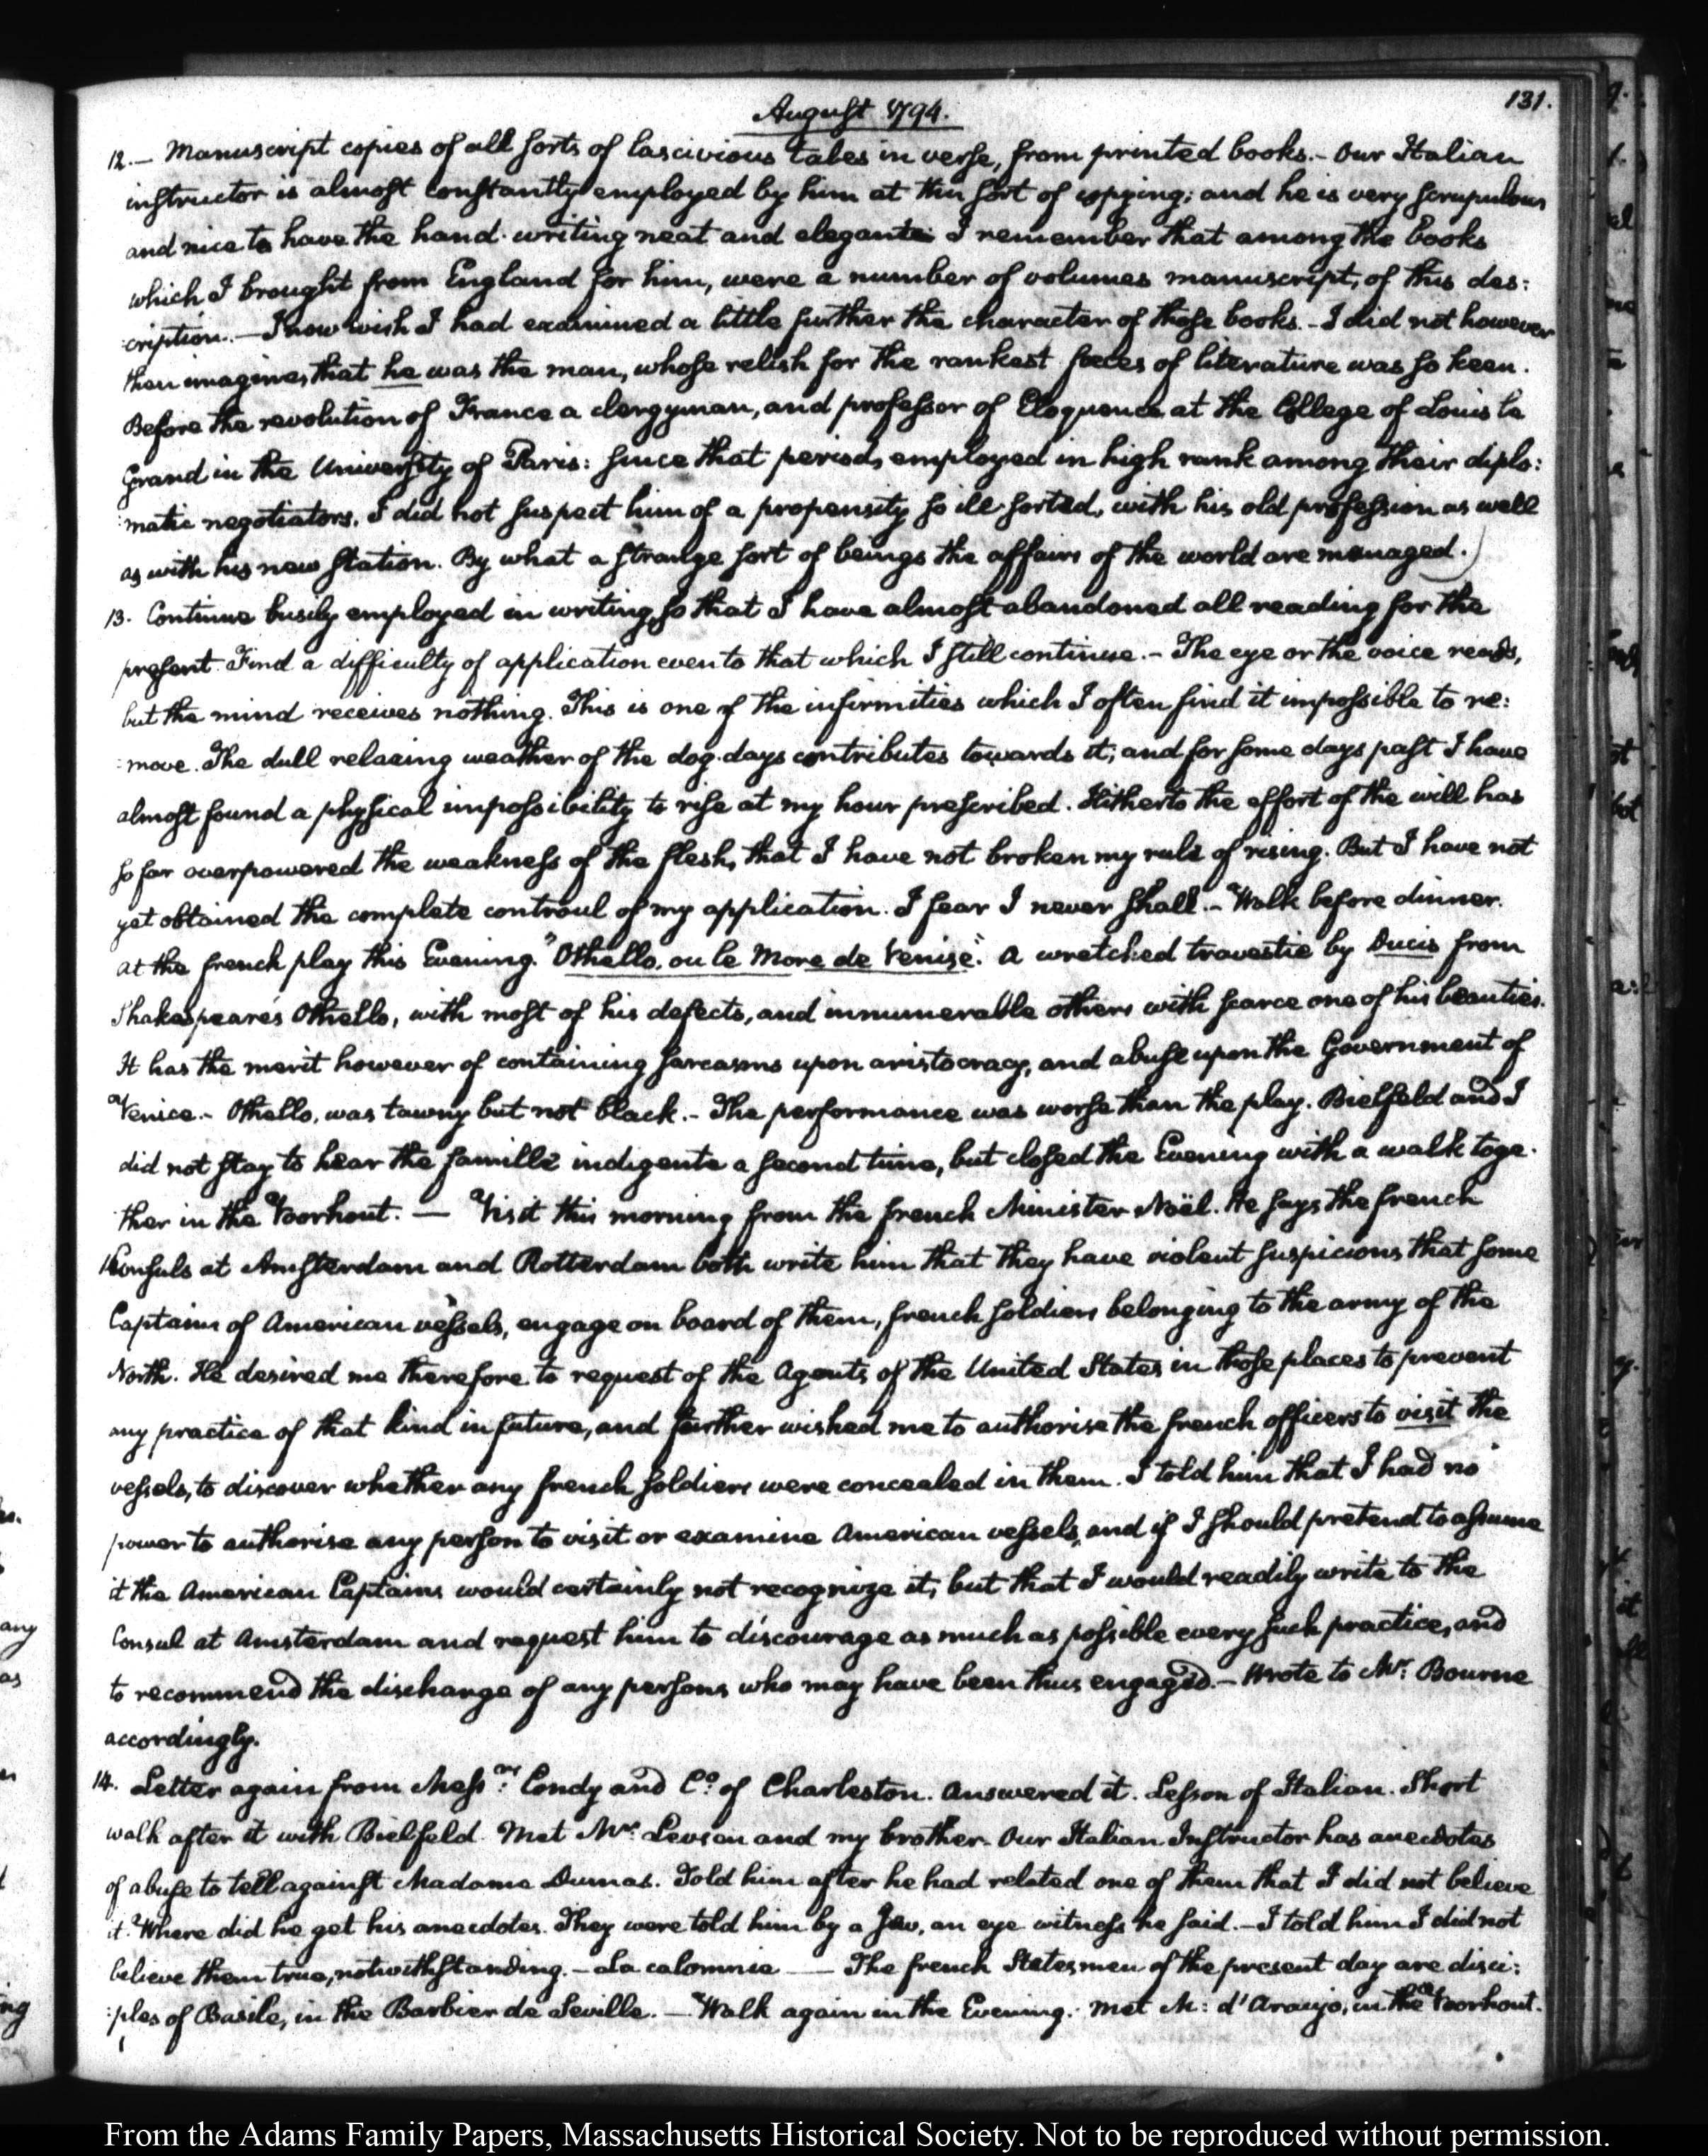 131.
August 1794.
12.— Manuscript copies of all sorts of lascivious tales in verse, from printed books.- Our Italian
instructor is almost constantly employed by him at this sort of copying; and he is very scrupulous
and nice to have the hand-writing neat and elegant. I remember that among the books
which I brought from England for him, were a number of volumes manuscript, of this des:
:cription.— I now wish I had examined a little further the character of those books.- I did not however
then imagine, that he was the man, whose relish for the rankest fæces of literature was so keen.
Before the revolution of France a clergyman, and professor of Eloquence at the College of Louis le
Grand in the University of Paris: since that period, employed in high rank among their diplo:
:matic negotiators. I did not suspect him of a propensity so ill-sorted, with his old profession as well
as with his new station. By what a strange sort of beings the affairs of the world are managed.)
13. Continue busily employed in writing, so that I have almost abandoned all reading for the
present. Find a difficulty of application even to that which I still continue.- The eye or the voice reads,
but the mind receives nothing. This is one of the infirmities which I often find it impossible to re:
:move. The dull relaxing weather of the dog-days contributes towards it; and for some days past I have
almost found a physical impossibility to rise at my hour prescribed. Hitherto the effort of the will has
so far overpowered the weakness of the flesh, that I have not broken my rule of rising. But I have not
yet obtained the complete controul of my application. I fear I never shall.- Walk before dinner.
At the french play this Evening. "Othello, ou le More de Venise". A wretched travestie by Ducis from
Shakespeare's Othello, with most of his defects, and innumerable others with scarce one of his beauties.
It has the merit however of containing sarcasms upon aristocracy, and abuse upon the Government of
Venice.- Othello, was tawny but not black.- The performance was worse than the play. Bielfeld and I
did not stay to hear the famille indigente a second time, but closed the Evening with a walk toge-
ther in the Voorhout. — Visit this morning from the french Minister Noël. He says the french
Consuls at Amsterdam and Rotterdam both write him that they have violent suspicions that some
Captains of American vessels, engage on board of them, french soldiers belonging to the army of the
North. He desired me therefore to request of the Agents of the United States in those places to prevent
any practice of that kind in future, and further wished me to authorise the french officers to visit the
vessels, to discover whether any french soldiers were concealed in them. I told him that I had no
power to authorise any person to visit or examine American vessels, and if I should pretend to assume
it the American Captains would certainly not recognize it; but that I would readily write to the
Consul at Amsterdam and request him to discourage as much as possible every such practice, and
to recommend the discharge of any persons who may have been thus engaged.- Wrote to Mr: Bourne
accordingly.
14. Letter again from Messrs: Condy and Co. of Charleston. Answered it. Lesson of Italian. Short
walk after it with Bielfeld. Met Mr: Levsen and my brother. Our Italian Instructor has anecdotes
of abuse to tell against Madame Dumas. Told him after he had related one of them that I did not believe
it. Where did he get his anecdotes. They were told him by a Jew, an eye witness he said.— I told him I did not
believe them true, notwithstanding.- La calomnie — The french Statesmen of the present day are disci:
:ples of Basile, in the Barbier de Seville. — Walk again in the Evening. Met M: d'Araujo, in the Voorhout.
From the Adams Family Papers, Massachusetts Historical Society. Not to be reproduced without permission.